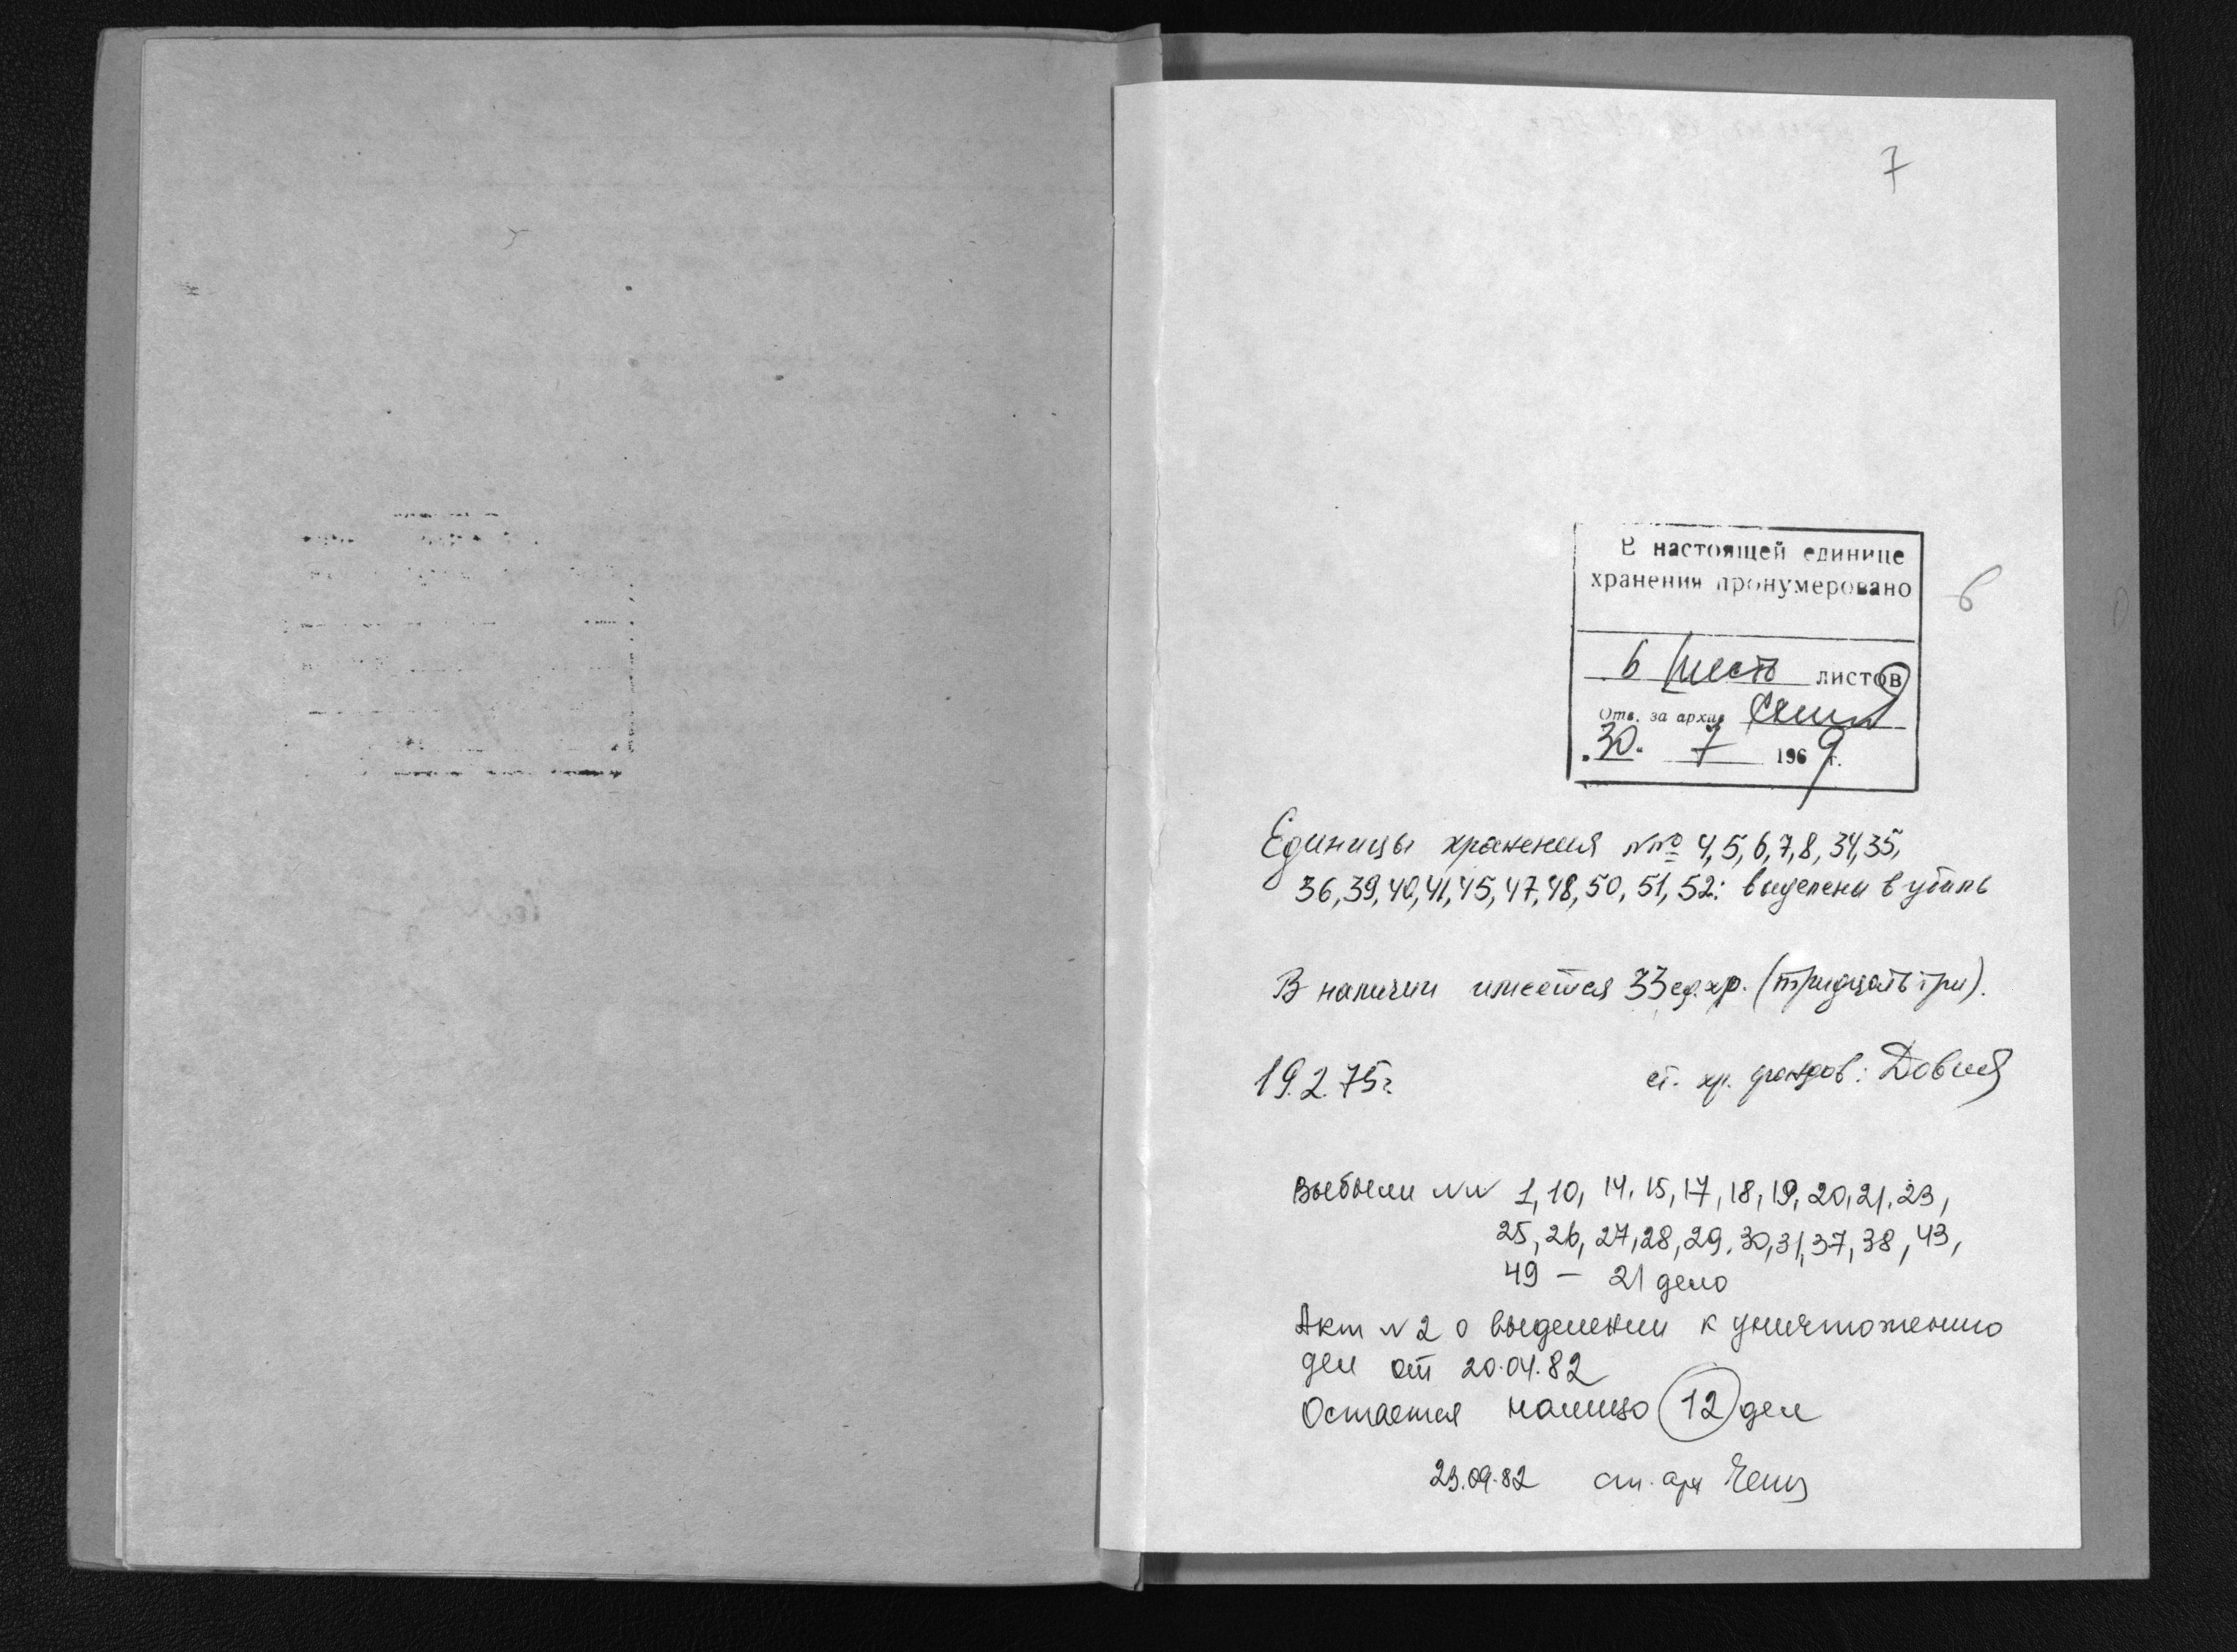 7
В настоящей единице
хранения пронумеровано
6
6 (шесть листов
Отв. за архив
30. 7 1969 г.
Единицы хранения №№ 4, 5, 6, 7, 8, 34, 35,
36, 39, 40, 41, 45, 47, 48, 50, 51, 52: выделены в утиль
В наличии имеется 33 ед. хр. (тридцать три).
19.2.75 г.
ст. хр. фондов:
Выбыли NN 1, 10, 14, 15, 17, 18, 19, 20, 21, 23,
25, 26, 27, 28, 29, 30, 31, 37, 38, 43,
49 — 21 дело
Акт N 2 о выделении к уничтожению
дел от 20.04.82
Остается налицо 12 дел
23.09.82 ст. арх